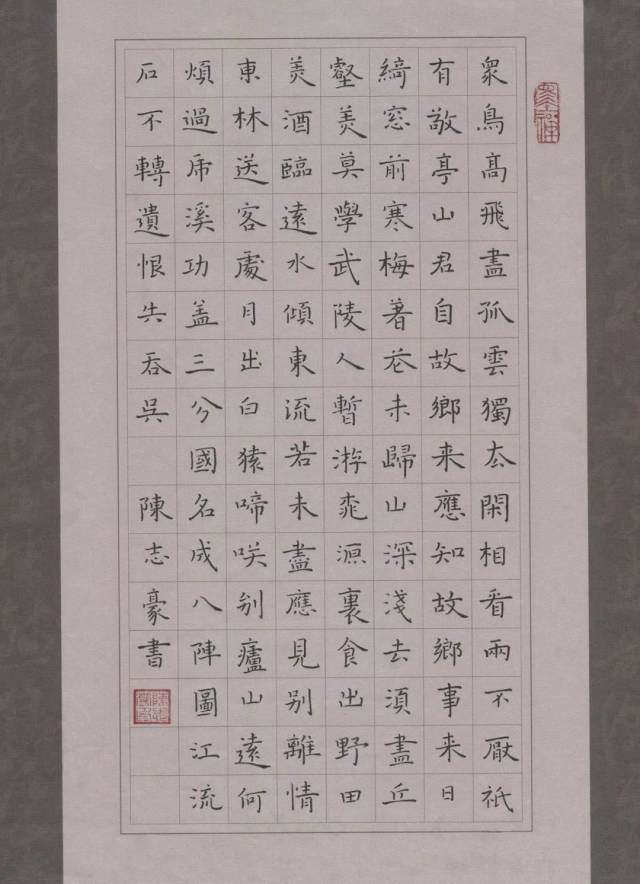 衆鳥髙飛盡孤雲獨去閑相看兩不厭祇
有敬亭山君自故鄉来應知故鄉事来日
綺窓前寒梅著花未歸山深淺去須盡丘
壑美莫學武陵人暫游桃源裏食出野田
美酒臨遠水傾東流若未盡應見别離情
東林送客處月出白猿啼咲别廬山遠何
煩過虎溪功盖三分國名成八陣圖江流
石不轉遺恨失吞吳 陳志豪書